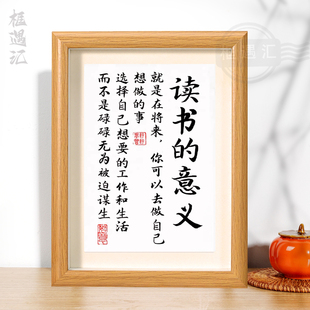 读书的意义
就是在将来，你可以去做自己
想做的事
选择自己想要的工作和生活
而不是碌碌无为被迫谋生
框遇汇
框遇汇